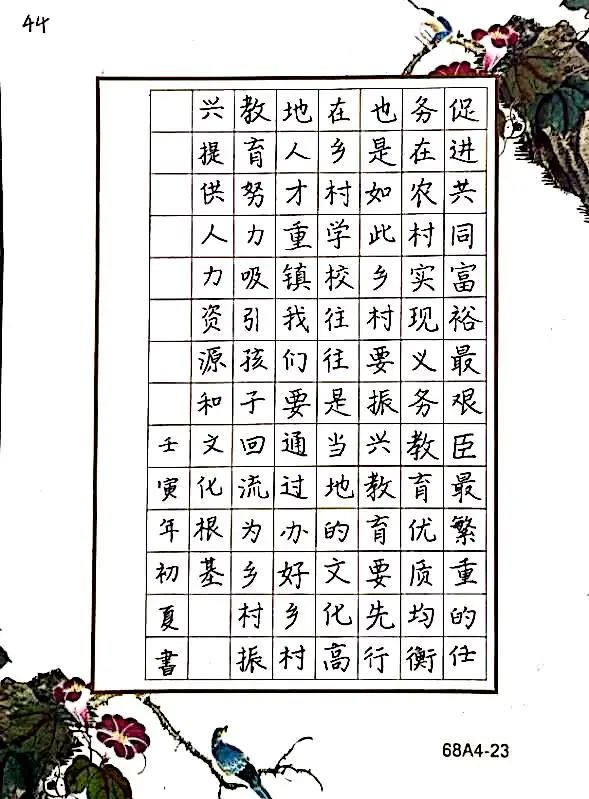 44
促进共同富裕最艰臣最繁重的任
务在农村实现义务教育优质均衡
也是如此乡村要振兴教育要先行
在乡村学校往往是当地的文化高
地人才重镇我们要通过办好乡村
教育努力吸引孩子回流为乡村振
兴提供人力资源和文化根基
壬寅年初夏書
68A4-23